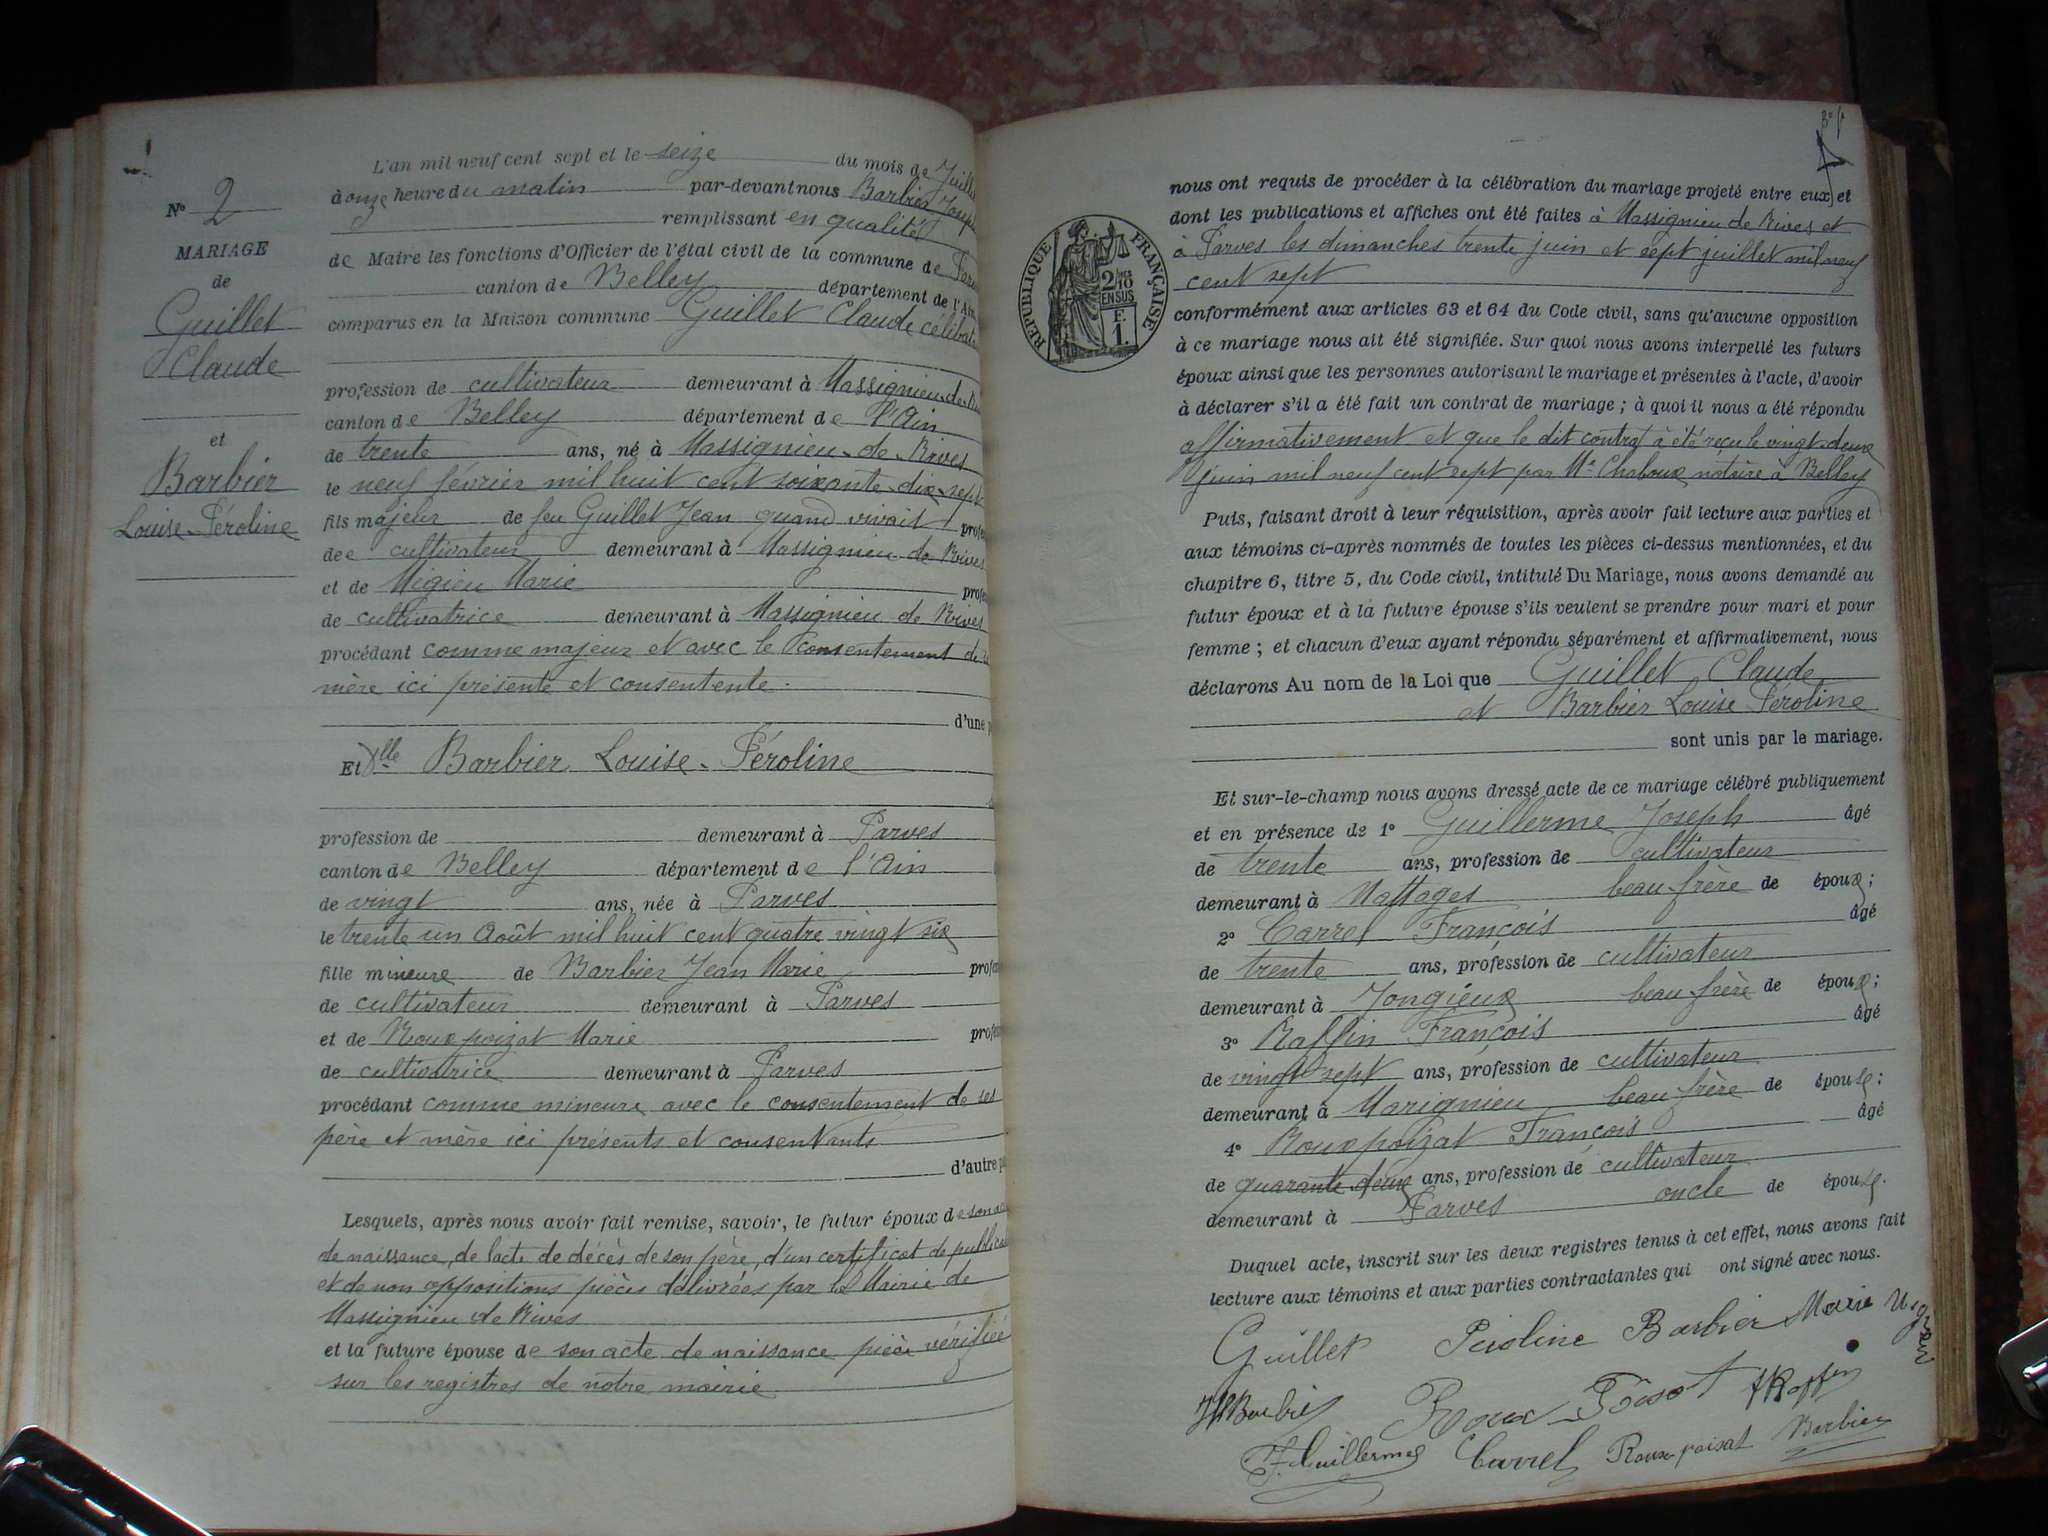 N° 2
MARIAGE
de
Guillet
Claude
et
Barbier
Louise-Péroline
L'an mil neuf cent sept et le seize du mois de Juillet
à onze heure du matin par-devant nous Barbier Joseph
remplissant en qualité
de Maire les fonctions d'Officier de l'état civil de la commune de Parves
canton de Belley département de l'Ain
comparus en la Maison commune Guillet Claude célibat
profession de cultivateur demeurant à Massignieu-de-Ri
canton de Belley département de l'Ain
de trente ans, né à Massignieu-de-Rives
le neuf février mil huit cent soixante-dix-sept
fils majeur de feu Guillet Jean quand vivait profes
de cultivateur demeurant à Massignieu de Rives
et de Migieu Marie profes
de cultivatrice demeurant à Massignieu de Rives
procédant comme majeur et avec le consentement de sa
mère ici présente et consentente.
d'une p
Et Mlle Barbier Louise-Péroline
profession de demeurant à Parves
canton de Belley département de l'Ain
de vingt ans, née à Parves
le trente un Août mil huit cent quatre vingt six
fille mineure de Barbier Jean Marie profes
de cultivateur demeurant à Parves
et de Roux poizat Marie profes
de cultivatrice demeurant à Parves
procédant comme mineure avec le consentement de ses
père et mère ici présents et consentants
d'autre pa
Lesquels, après nous avoir fait remise, savoir, le futur époux de son ac
de naissance, de l'acte de décès de son père, d'un certificat de publica
et de non oppositions pièces délivrées par la Mairie de
Massignieu de Rives
et la future épouse de son acte de naissance pièce vérifiée
sur les registres de notre mairie
REPUBLIQUE FRANÇAISE
2/10
EN SUS
F.
1.
nous ont requis de procéder à la célébration du mariage projeté entre eux et
dont les publications et affiches ont été faites à Massignieu de Rives et
à Parves les dimanches trente juin et sept juillet mil neuf
cent sept
conformément aux articles 63 et 64 du Code civil, sans qu'aucune opposition
à ce mariage nous ait été signifiée. Sur quoi nous avons interpellé les futurs
époux ainsi que les personnes autorisant le mariage et présentes à l'acte, d'avoir
à déclarer s'il a été fait un contrat de mariage ; à quoi il nous a été répondu
affirmativement et que le dit contrat à été reçu le vingt-deux
juin mil neuf cent sept par Me Chaboux notaire à Belley
Puis, faisant droit à leur réquisition, après avoir fait lecture aux parties et
aux témoins ci-après nommés de toutes les pièces ci-dessus mentionnées, et du
chapitre 6, titre 5, du Code civil, intitulé Du Mariage, nous avons demandé au
futur époux et à la future épouse s'ils veulent se prendre pour mari et pour
femme ; et chacun d'eux ayant répondu séparément et affirmativement, nous
déclarons Au nom de la Loi que Guillet Claude
et Barbier Louise Péroline
sont unis par le mariage.
Et sur-le-champ nous avons dressé acte de ce mariage célébré publiquement
et en présence de 1° Guillerme Joseph âgé
de trente ans, profession de cultivateur
demeurant à Nattages beau-frère de époux ;
2° Carrel François âgé
de trente ans, profession de cultivateur
demeurant à Jongieux beau frère de époux ;
3° Raffin François âgé
de vingt sept ans, profession de cultivateur
demeurant à Marignieu beau frère de épouse ;
4° Rouxpoizat François âgé
de quarante deux ans, profession de cultivateur
demeurant à Parves oncle de épouse.
Duquel acte, inscrit sur les deux registres tenus à cet effet, nous avons fait
lecture aux témoins et aux parties contractantes qui ont signé avec nous.
Guillet Péroline Barbier Marie Migieu
JM Barbier Roux-Poisat F Raffin
J. Guillerme Carrel Roux-poisat Barbier